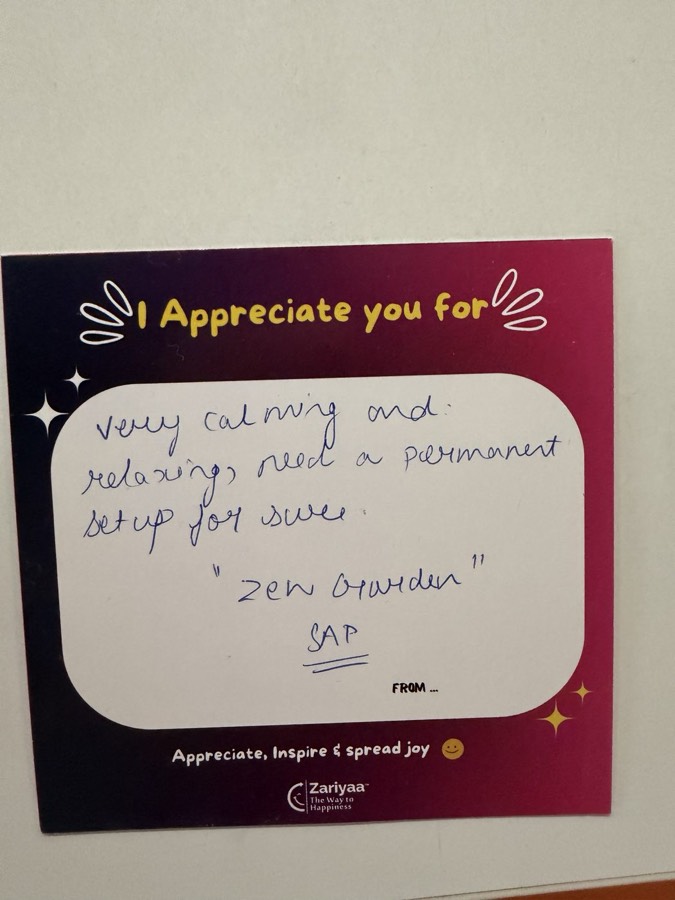 I Appreciate you for
Very calming and.
relaxing, need a permanent
setup for sure.
"Zen Garden"
SAP
FROM ...
Appreciate, Inspire & spread joy
Zariyaa™
The Way to
Happiness